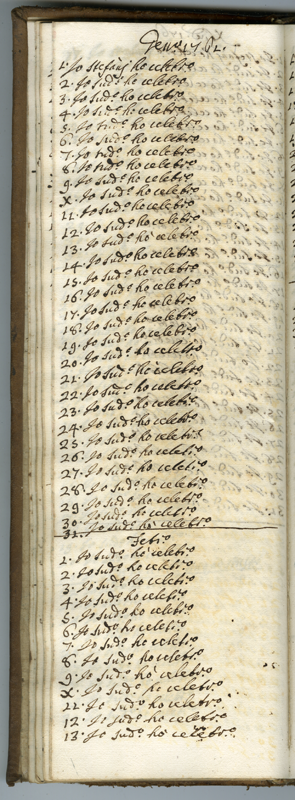 1. Jo Stefani ho celebr.o
2. Jo sud.o ho celebr.o
3. Jo sud.o ho celebr.o
4. Jo sud.o ho celebr.o
5. Jo sud.o ho celebr.o
6. Jo sud.o ho celebr.o
7. Jo sud.o ho celebr.o
8. Jo sud.o ho celebr.o
9. Jo sud.o ho celebr.o
X. Jo sud.o ho celebr.o
11. Jo sud.o ho celebr.o
12. Jo sud.o ho celebr.o
13. Jo sud.o ho celebr.o
14. Jo sud.o ho celebr.o
15. Jo sud.o ho celebr.o
16. Jo sud.o ho celebr.o
17. Jo sud.o ho celebr.o
18. Jo sud.o ho celebr.o
19. Jo sud.o ho celebr.o
20. Jo sud.o ho celebr.o
21. Jo sud.o ho celebr.o
22. Jo sud.o ho celebr.o
23. Jo sud.o ho celebr.o
24. Jo sud.o ho celebr.o
25. Jo sud.o ho celebr.o
26. Jo sud.o ho celebr.o
27. Jo sud.o ho celebr.o
28. Jo sud.o ho celebr.o
29. Jo sud.o ho celebr.o
30. Jo sud.o ho celebr.o
31. Jo sud.o ho celebr.o
Febr.o
1. Jo sud.o ho celebr.o
2. Jo sud.o ho celebr.o
3. Jo sud.o ho celebr.o
4. Jo sud.o ho celebr.o
5. Jo sud.o ho celebr.o
6. Jo sud.o ho celebr.o
7. Jo sud.o ho celebr.o
8. Jo sud.o ho celebr.o
9. Jo sud.o ho celebr.o
X. Jo sud.o ho celebr.o
11. Jo sud.o ho celebr.o
12. Jo sud.o ho celebr.o
13. Jo sud.o ho celebr.o